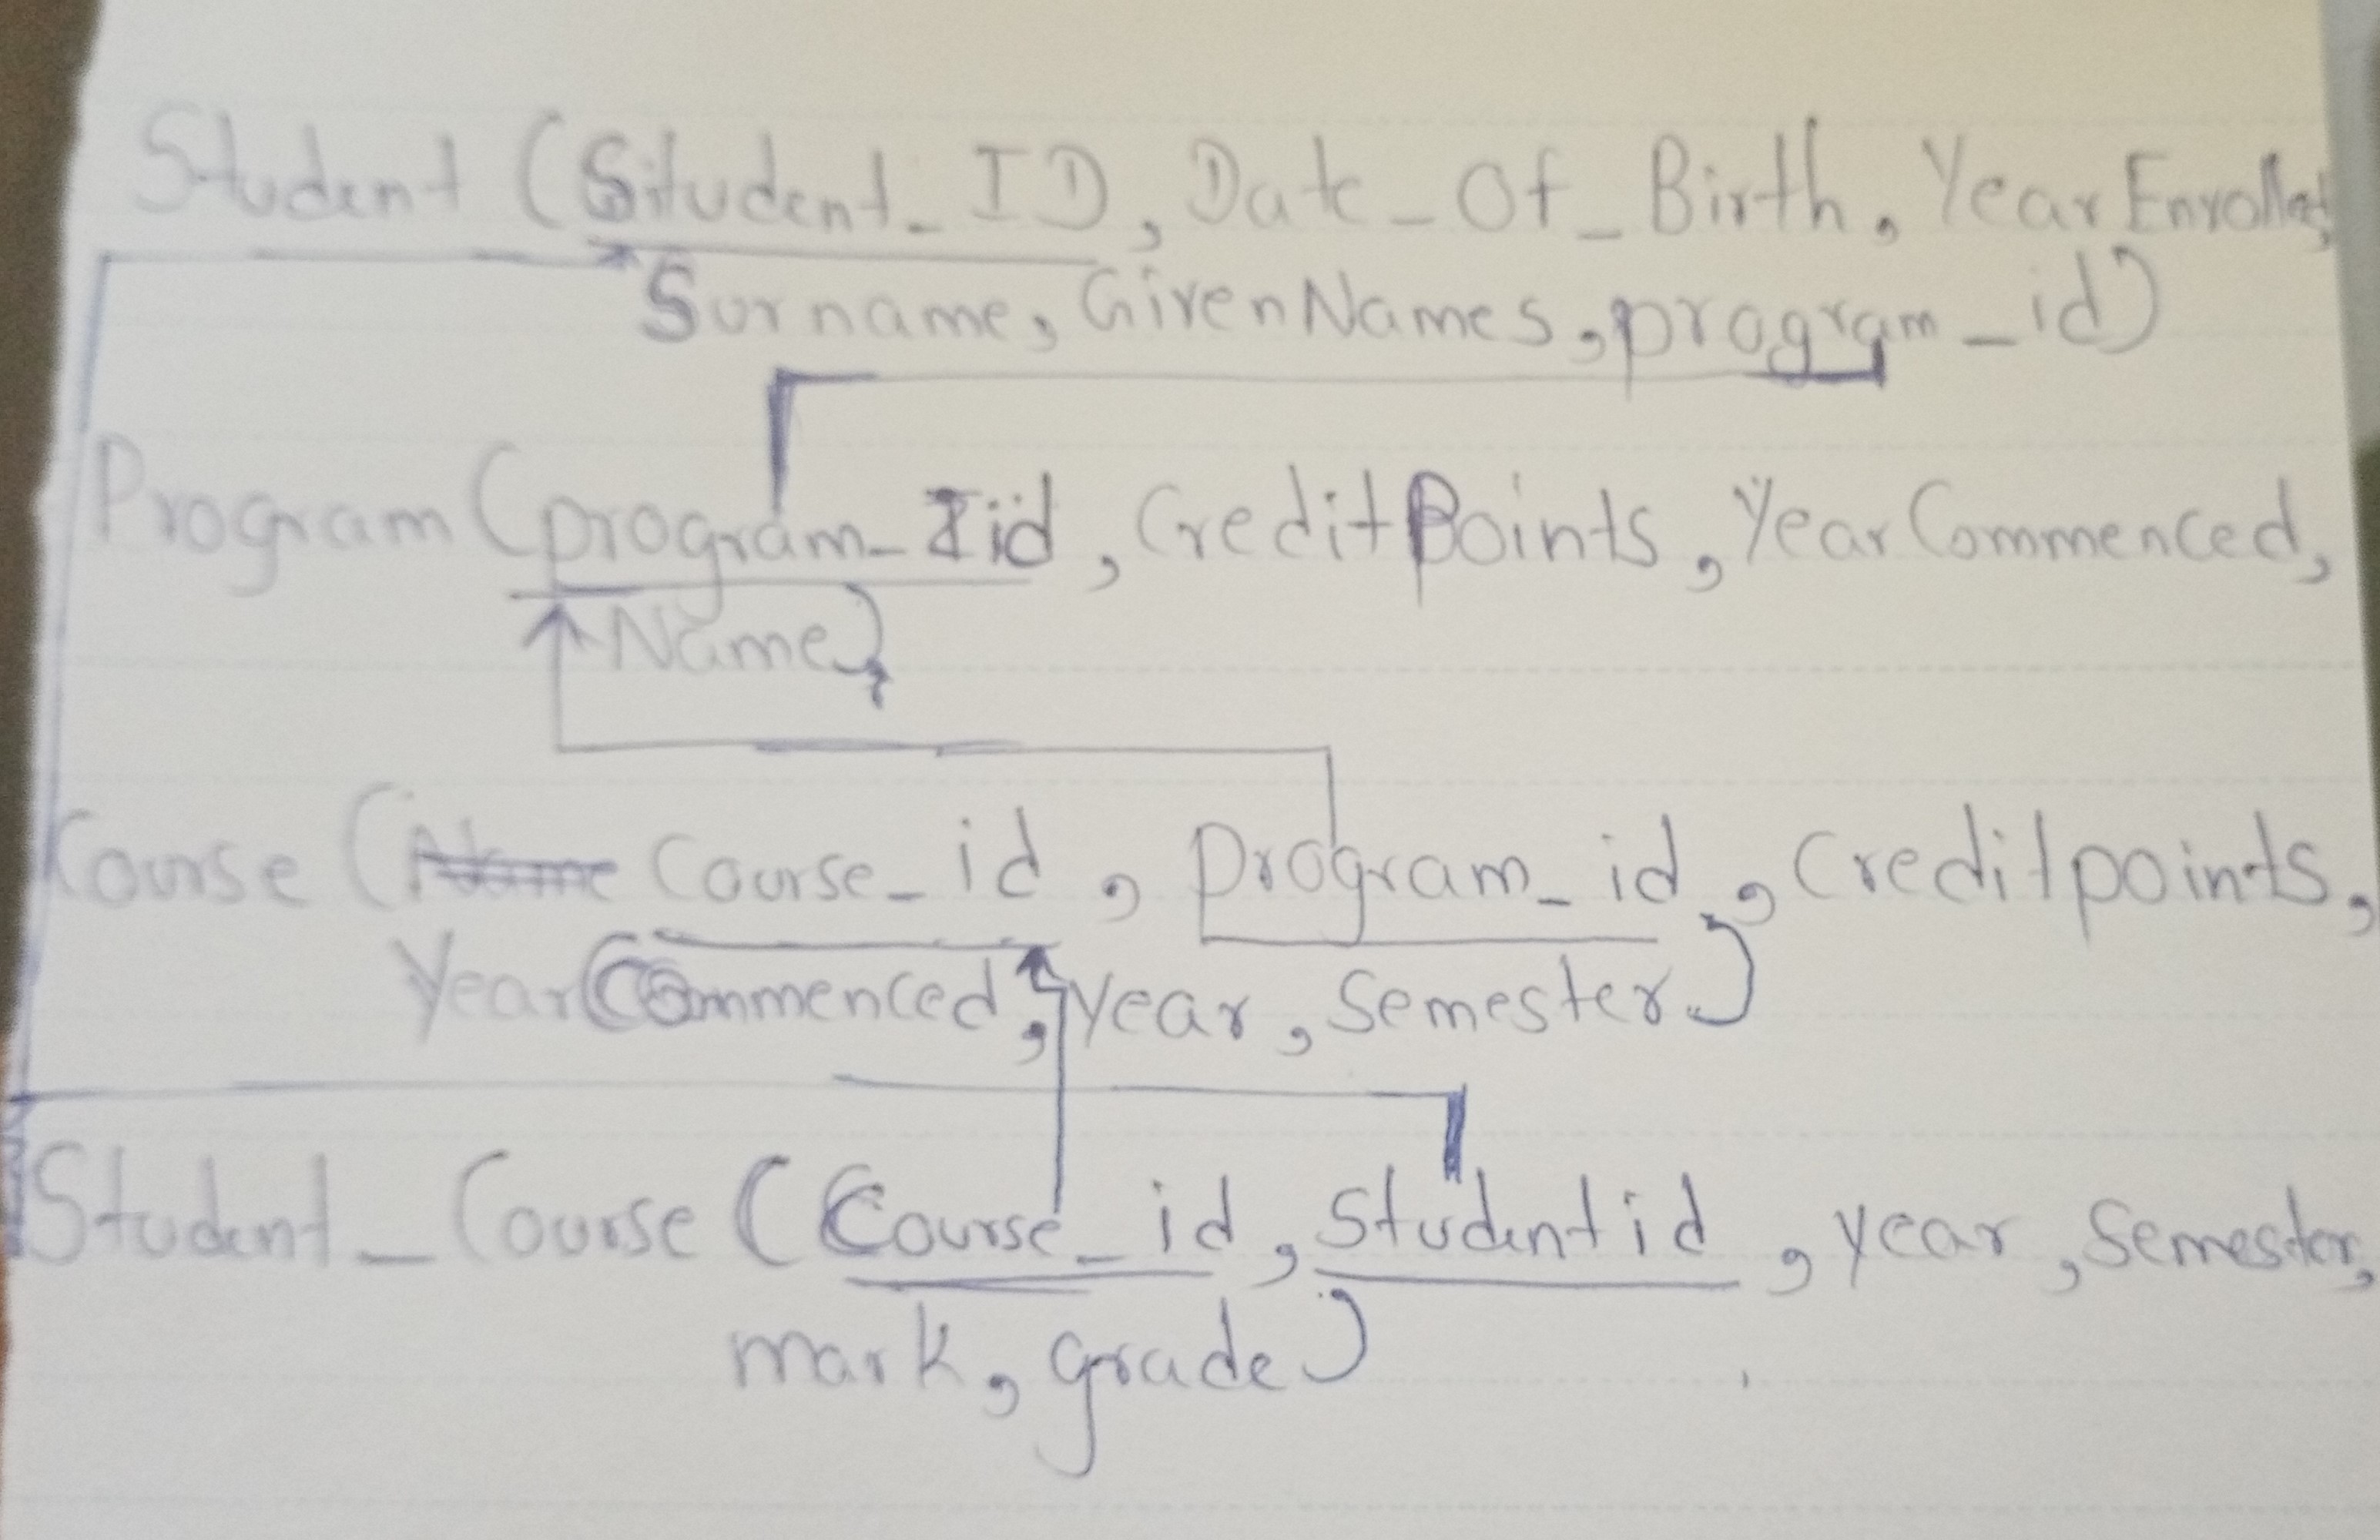 Student (Student_ID, Date_Of_Birth, YearEnrolled,
Surname, GivenNames, program_id)
Program (program_id, CreditPoints, YearCommenced,
Name),
Course (Name Course_id, program_id, Creditpoints,
YearCommenced, year, Semester)
Student_Course (Course_id, Studentid, year, Semester,
mark, grade)